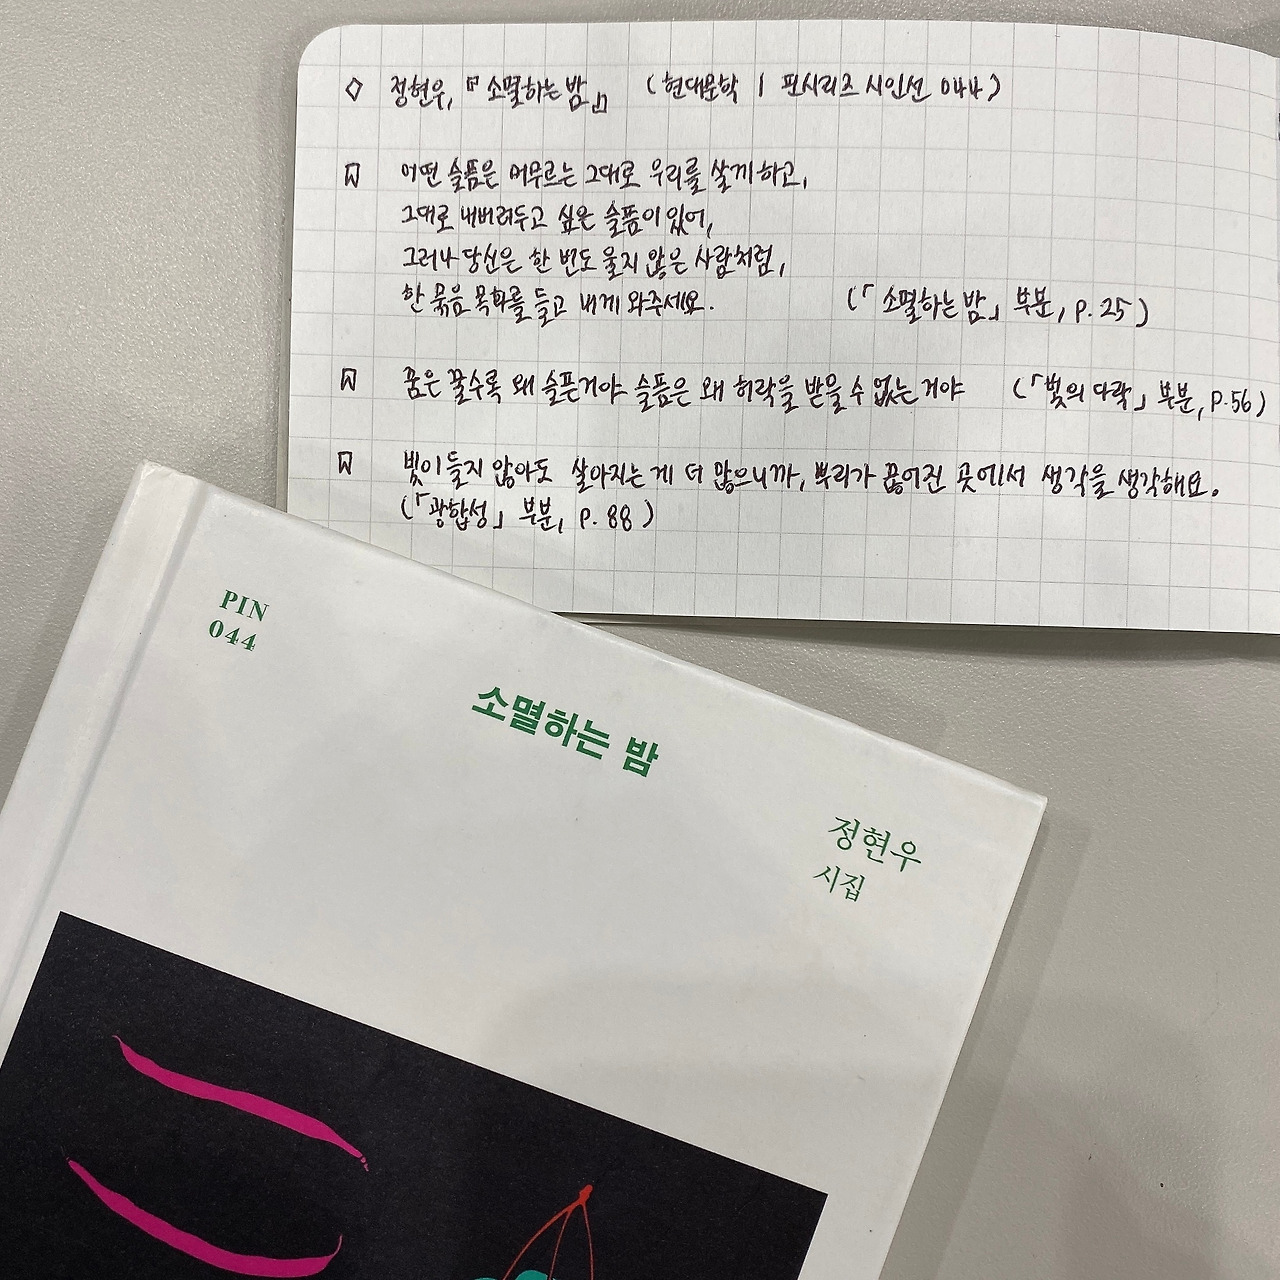 ◇ 정현우, 『소멸하는 밤』 (현대문학 | 핀시리즈 시인선 044)
어떤 슬픔은 머무르는 그대로 우리를 살게하고,
그대로 내버려두고 싶은 슬픔이 있어,
그러나 당신은 한 번도 울지 않은 사람처럼,
한 묶음 목화를 들고 내게 와주세요. (「소멸하는 밤」 부분, p.25)
꿈은 꿀수록 왜 슬픈거야 슬픔은 왜 허락을 받을 수 없는 거야 (「빛의 다락」 부분, p.56)
빛이 들지 않아도 살아지는 게 더 많으니까, 뿌리가 끊어진 곳에서 생각을 생각해요.
(「광합성」 부분, p.88)
PIN
044
소멸하는 밤
정현우
시집